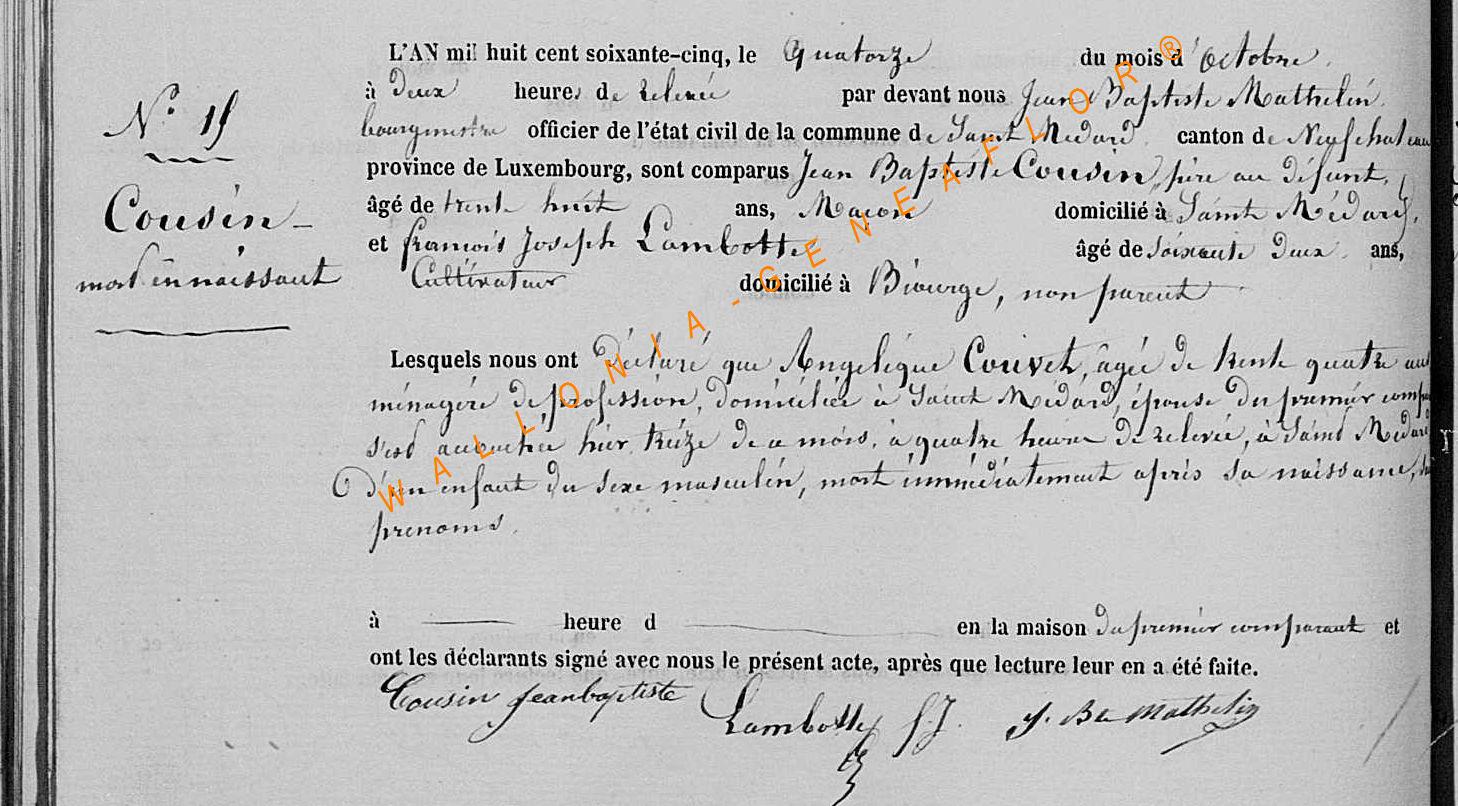 L'AN mil huit cent soixante-cinq, le Quatorze du mois d'Octobre.
à Deux heures de relevée par devant nous Jean Baptiste Mathelin.
N° 15
bourgmestre officier de l'état civil de la commune de Saint Médard. canton de Neufchateau
province de Luxembourg, sont comparus Jean Baptiste Cousin, père au défunt,
Cousin
âgé de trente huit ans, Maçon domicilié à Saint Médard,
et françois Joseph Lambotte âgé de soixante deux. ans,
mort en naissant
Cultivateur domicilié à Biourge, non parent
Lesquels nous ont Déclaré que Angelique Couvet, âgée de trente quatre ans
ménagère de profession, domiciliée à Saint Médard, épouse du premier
s'est accouchée hier treize de ce mois, à quatre heures de relevée, à Saint Médard
d'un enfant du sexe masculin, mort immédiatement après sa naissance,
prenoms.
à heure d en la maison du premier comparant et
ont les déclarants signé avec nous le présent acte, après que lecture leur en a été faite.
Cousin jeanbaptiste
Lambotte f. J. J. Bte Mathelin
WALLONIA-GENEAFLOR®